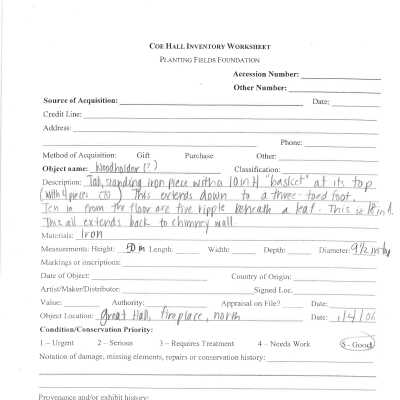 COE HALL INVENTORY WORKSHEET
PLANTING FIELDS FOUNDATION
Accession Number:
Other Number:
Source of Acquisition: Date:
Credit Line:
Address:
Phone:
Method of Acquisition: Gift Purchase Other:
Object name: Woodholder (?) Classification:
Description: Tall, standing iron piece with a 10in H "basket" at its top
(with 4 pieces This extends down to a three-toed foot.
Ten in from the floor are five ripple beneath a leaf. This is 18in
This all extends back to chimney wall.
Materials: iron
Measurements: Height: 50 in Length: Width: Depth: Diameter: 9½ in
Markings or inscriptions:
Date of Object: Country of Origin:
Artist/Maker/Distributor: Signed Loc.
Value: Authority: Appraisal on File? Date:
Object Location: Great Hall, fireplace, north Date: 1/4/06
Condition/Conservation Priority:
1 – Urgent 2 – Serious 3 – Requires Treatment 4 – Needs Work 5 – Good
Notation of damage, missing elements, repairs or conservation history:
Provenance and/or exhibit history: